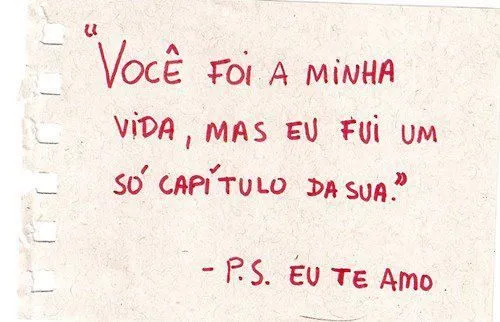 "VOCÊ FOI A MINHA
VIDA, MAS EU FUI UM
SÓ CAPÍTULO DA SUA."
- P.S. EU TE AMO